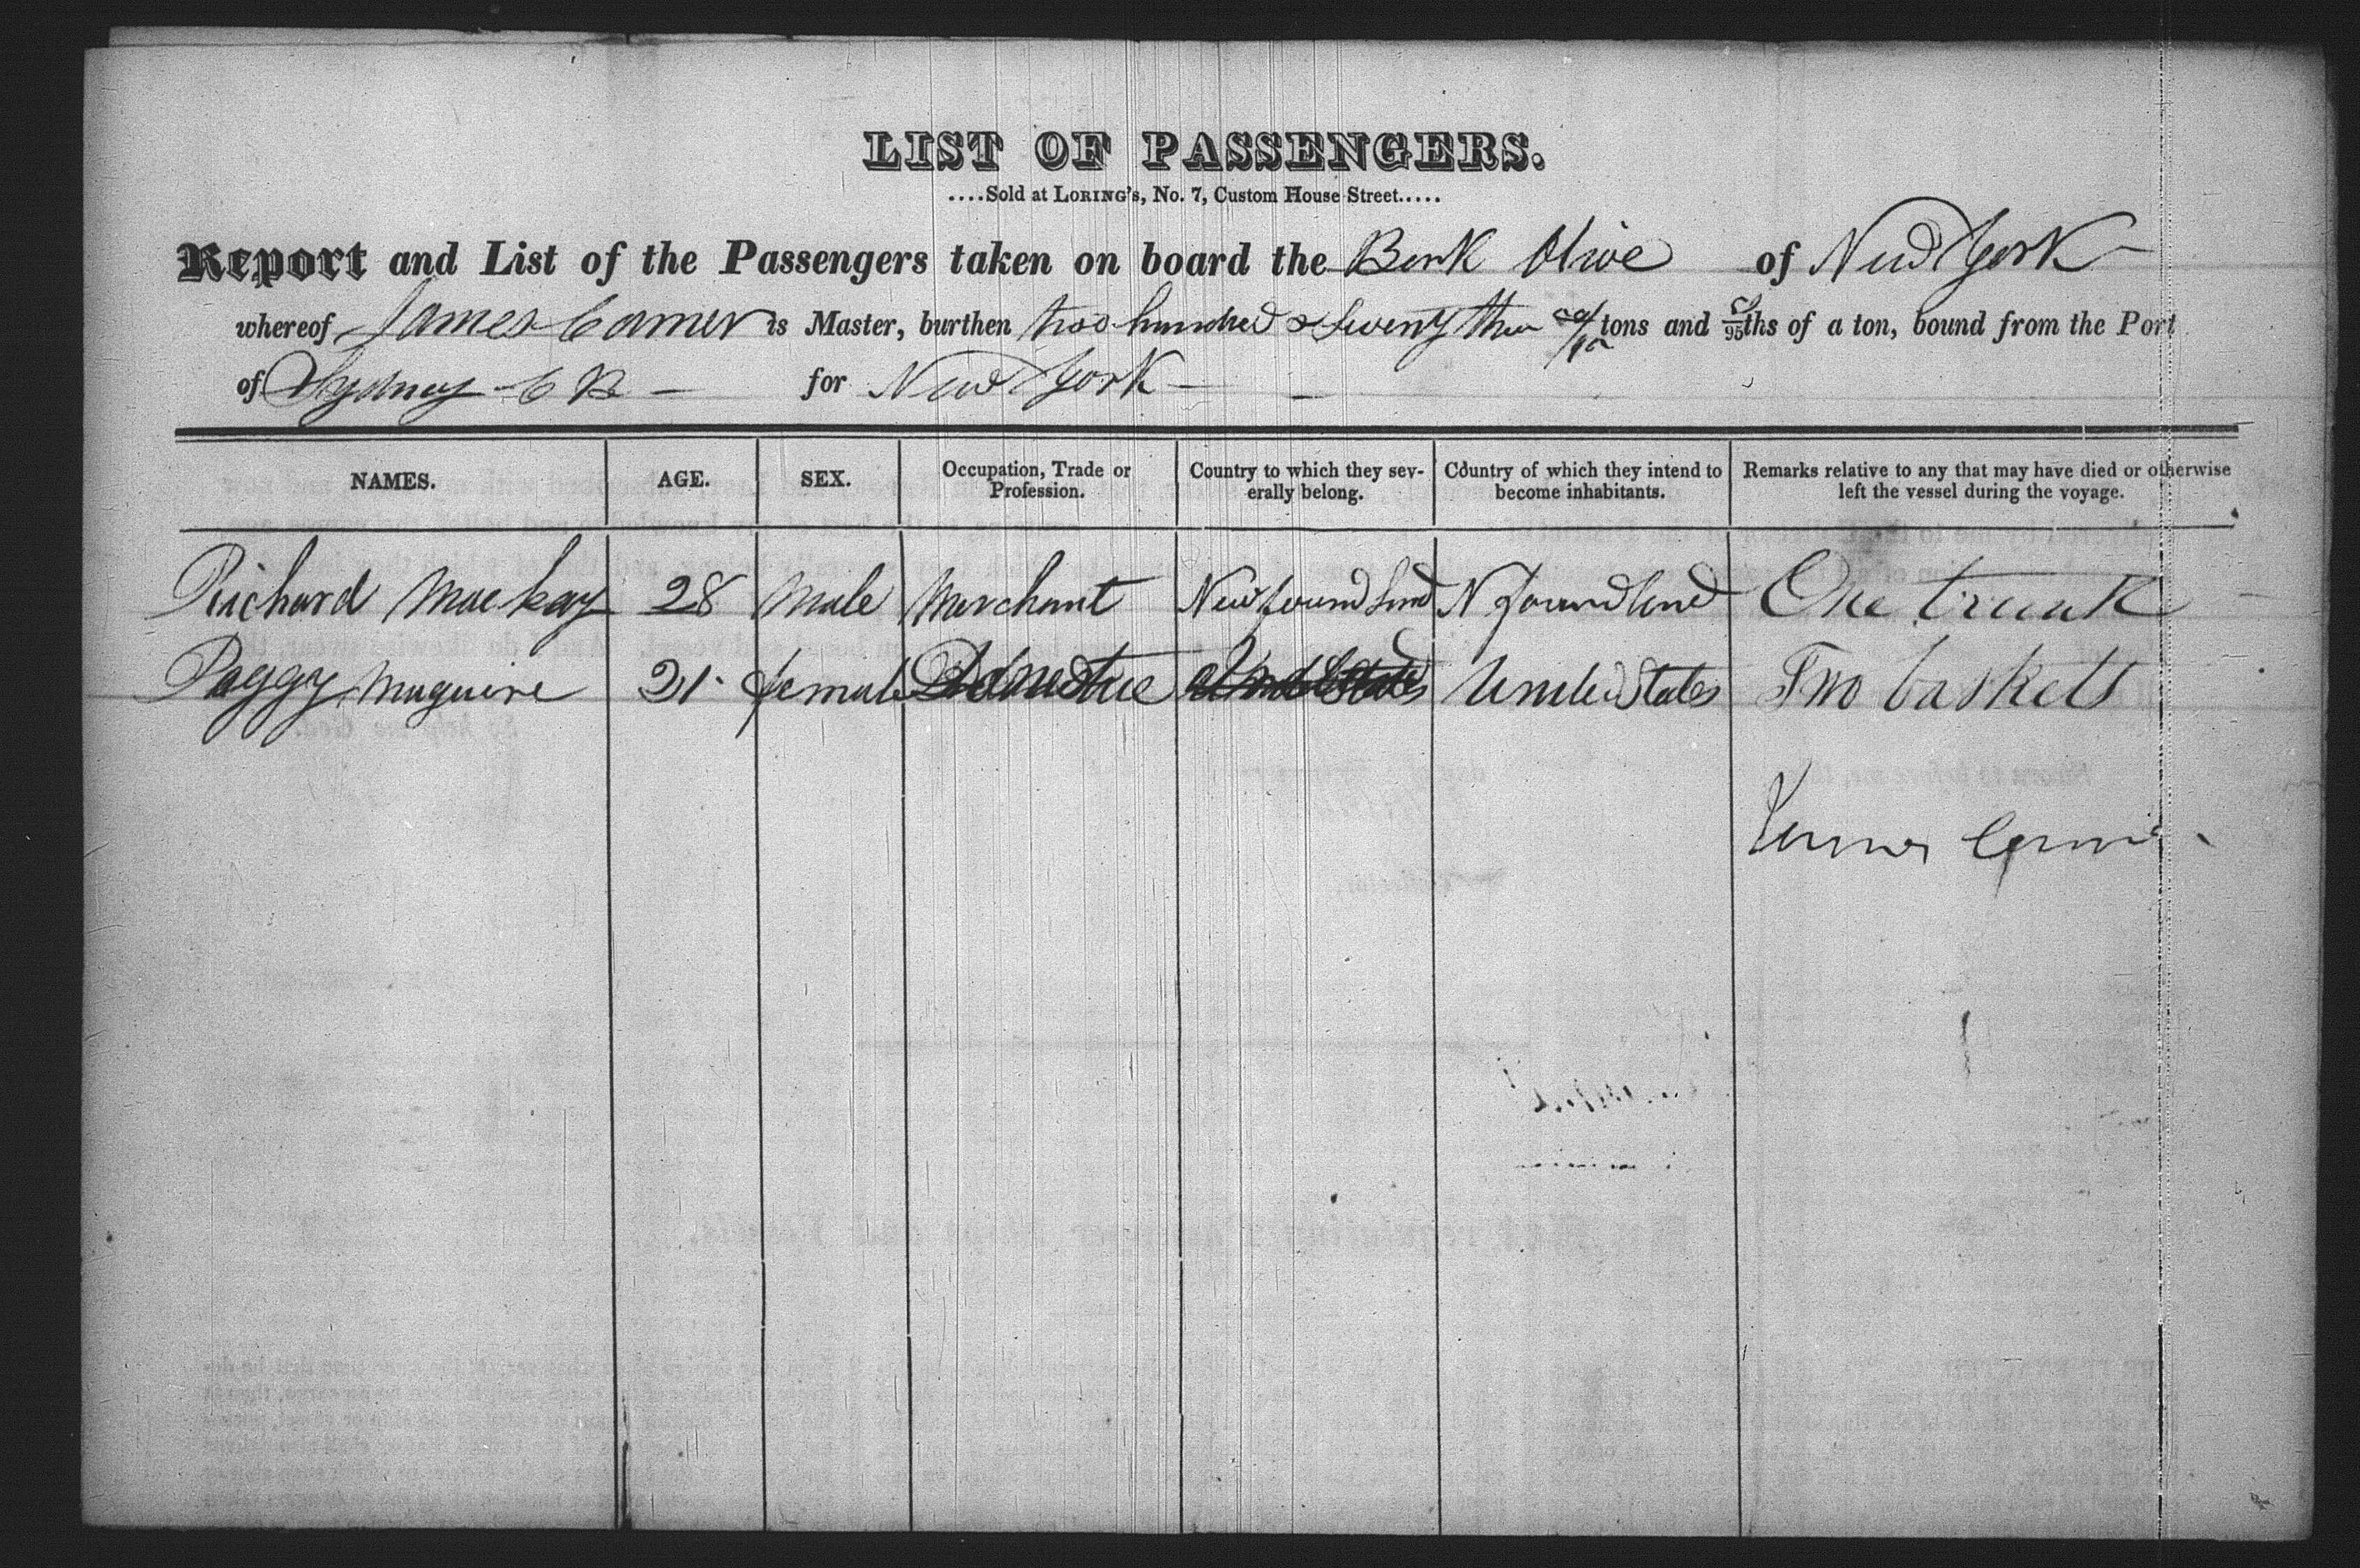 LIST OF PASSENGERS.
....Sold at LORING's, No. 7, Custom House Street.....
Report and List of the Passengers taken on board the Bark Olive of New York
whereof James Corner is Master, burthen two hundred & Seventy three tons and /95ths of a ton, bound from the Port
of Sydney C B for New York
NAMES. AGE. SEX. Occupation, Trade or Profession. Country to which they severally belong. Country of which they intend to become inhabitants. Remarks relative to any that may have died or otherwise left the vessel during the voyage.
Richard Mackay 28 Male Merchant Newfoundland N foundland One trunk
Peggy Maguire 21 female Domestic United States Two baskets